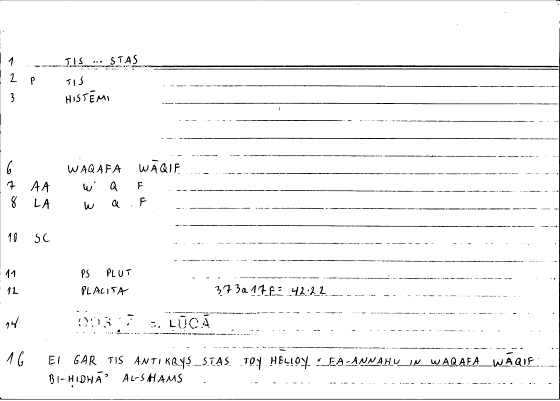 1 TIS ... STAS
2 P TIS
3 HISTĒMI
6 WAQAFA WĀQIF
7 AA W Q F
8 LA W Q F
10 SC
11 PS PLUT
12 PLACITA 373a17F = 42.22
14 LŪQĀ
16 EI GAR TIS ANTIKRYS STAS TOY HĒLIOY : FA-ANNAHU IN WAQAFA WĀQIF
BI-ḤIDHĀ' AL-SHAMS